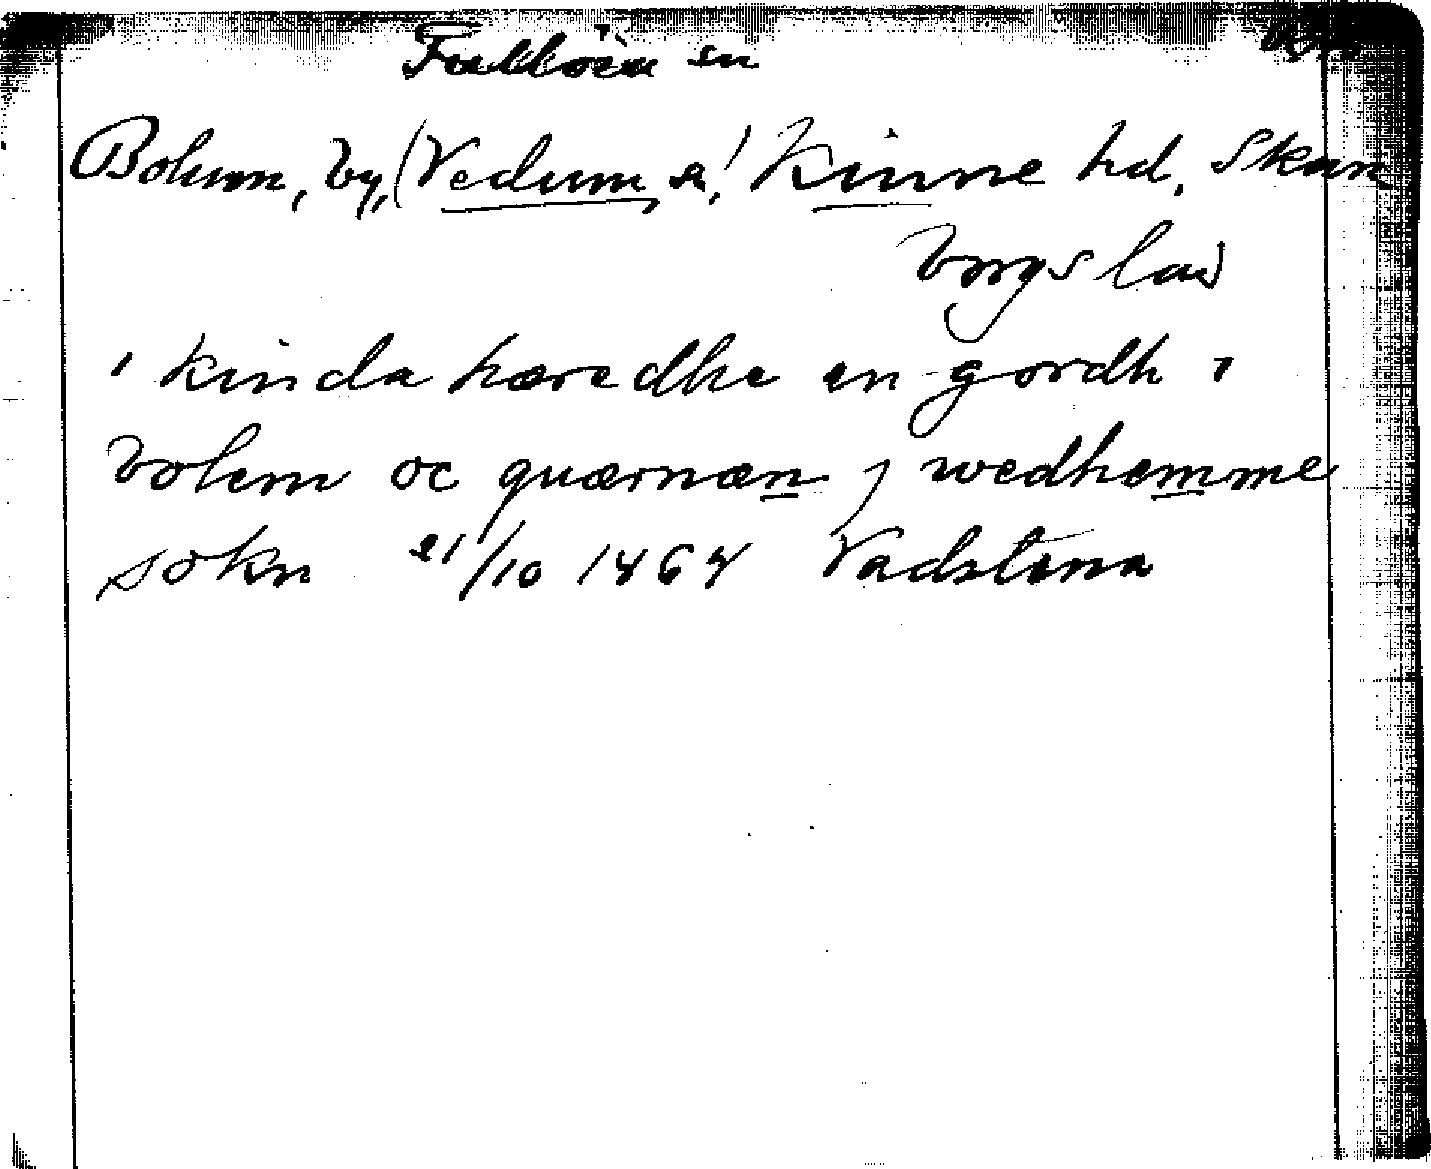 Fullösa sn
Bolum, by, (Vedum s!) Kinne hd, Skara
borgs län
i kinda hæredhe en gordh i
bolem oc quærnæn j wedhemme
sokn 21/10 1467 Vadstena